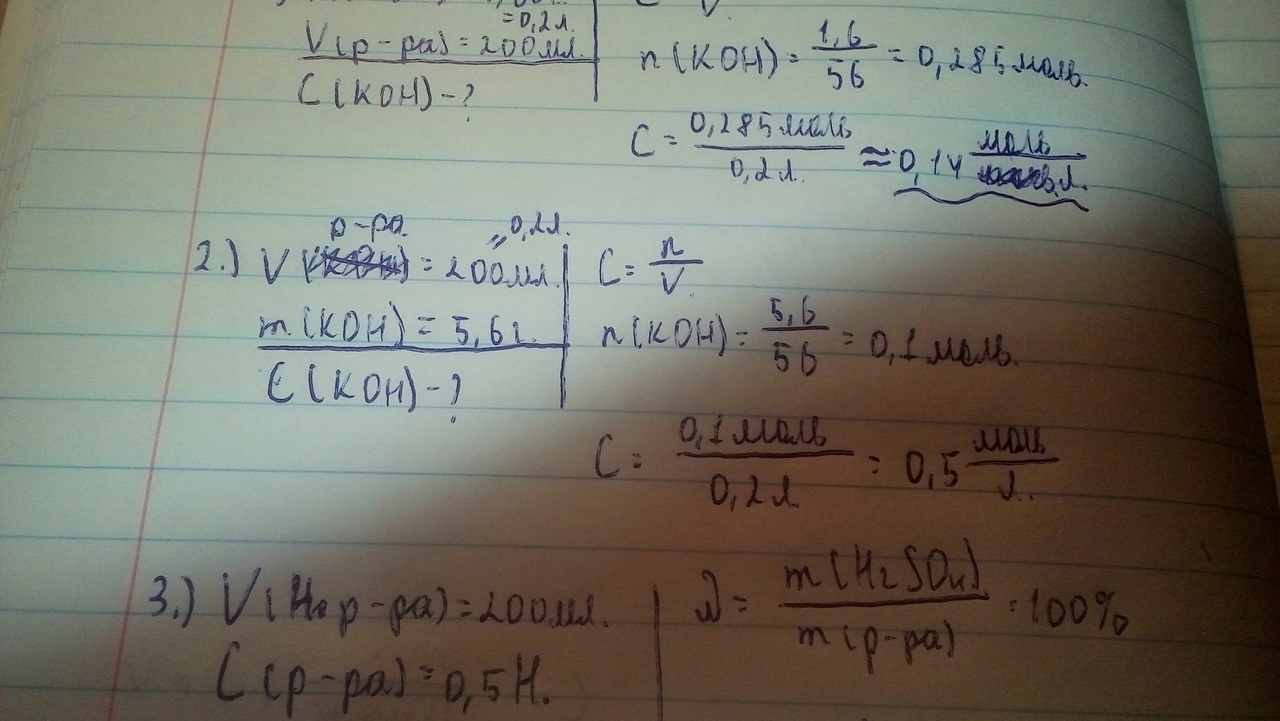 =0,2л.
V(р-ра)=200мл.
C(KOH)-?
n(KOH)=1,6/56=0,285моль.
C=0,285моль/0,2л.≈0,14 моль/л.
р-ра =0,2л.
2.) V( )=200мл.
m(KOH)=5,6г.
C(KOH)-?
C=n/V
n(KOH)=5,6/56=0,1моль.
C=0,1моль/0,2л.=0,5 моль/л.
3.) V( р-ра)=200мл.
C(р-ра)=0,5Н.
W=m(H₂SO₄)/m(р-ра)·100%